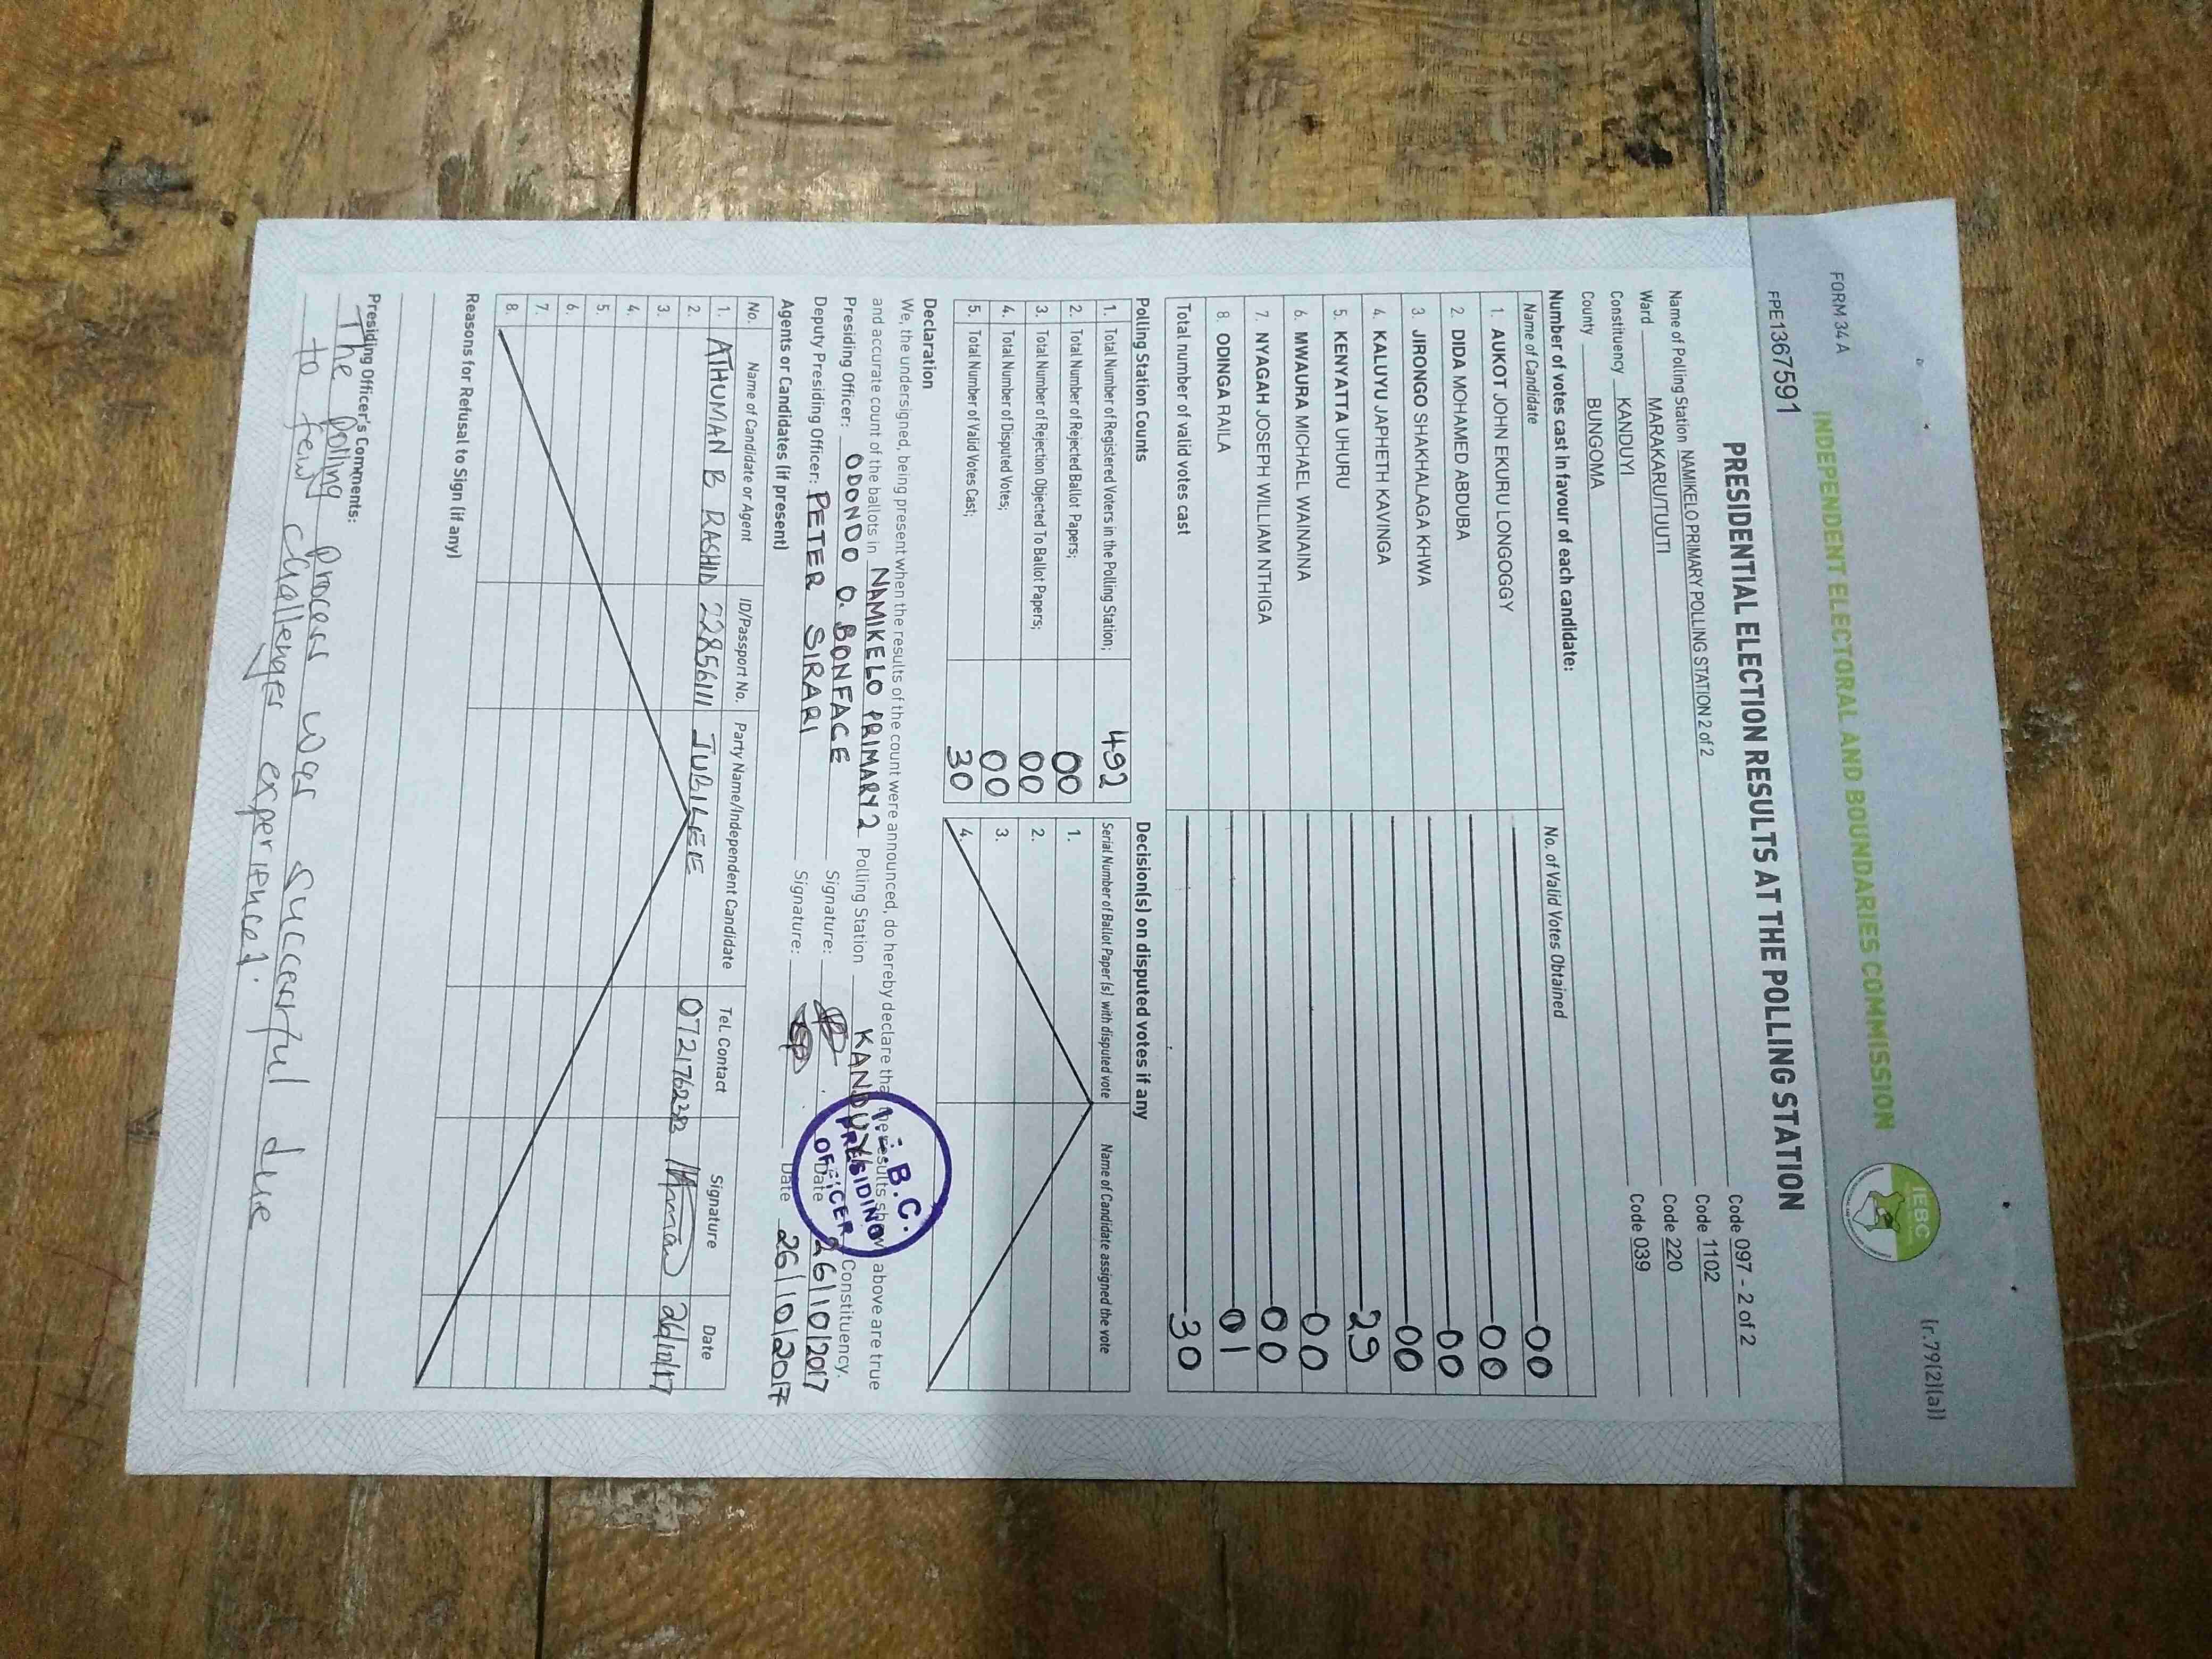 FORM 34 A
(r.79(2)(a))
INDEPENDENT ELECTORAL AND BOUNDARIES COMMISSION
IEBC
FPE1367591
PRESIDENTIAL ELECTION RESULTS AT THE POLLING STATION
Name of Polling Station NAMIKELO PRIMARY POLLING STATION 2 of 2 Code 097 - 2 of 2
Ward MARAKARU/TUUTI Code 1102
Constituency KANDUYI Code 220
County BUNGOMA Code 039
Number of votes cast in favour of each candidate:
Name of Candidate No. of Valid Votes Obtained
1. AUKOT JOHN EKURU LONGOGGY 00
2. DIDA MOHAMED ABDUBA 00
3. JIRONGO SHAKHALAGA KHWA 00
4. KALUYU JAPHETH KAVINGA 00
5. KENYATTA UHURU 29
6. MWAURA MICHAEL WAINAINA 00
7. NYAGAH JOSEPH WILLIAM NTHIGA 00
8. ODINGA RAILA 01
Total number of valid votes cast 30
Polling Station Counts
1. Total Number of Registered Voters in the Polling Station; 492
2. Total Number of Rejected Ballot Papers; 00
3. Total Number of Rejection Objected To Ballot Papers; 00
4. Total Number of Disputed Votes; 00
5. Total Number of Valid Votes Cast; 30
Decision(s) on disputed votes if any
Serial Number of Ballot Paper(s) with disputed vote Name of Candidate assigned the vote
1.
2.
3.
4.
Declaration
We, the undersigned, being present when the results of the count were announced, do hereby declare that the results show above are true
and accurate count of the ballots in NAMIKELO PRIMARY 2 Polling Station KANDUYI Constituency.
Presiding Officer: ODONDO O. BONFACE Signature: Date 26/10/2017
Deputy Presiding Officer: PETER SIRARI Signature: Date 26/10/2017
I.E.B.C.
PRESIDING
OFFICER
Agents or Candidates (if present)
No. Name of Candidate or Agent ID/Passport No. Party Name/Independent Candidate Tel. Contact Signature Date
1. ATHUMAN B RASHID 22856111 JUBILEE 26/10/17
2.
3.
4.
5.
6.
7.
8.
Reasons for Refusal to Sign (if any)
Presiding Officer's Comments:
The polling process was successful due
to few challenges experienced.